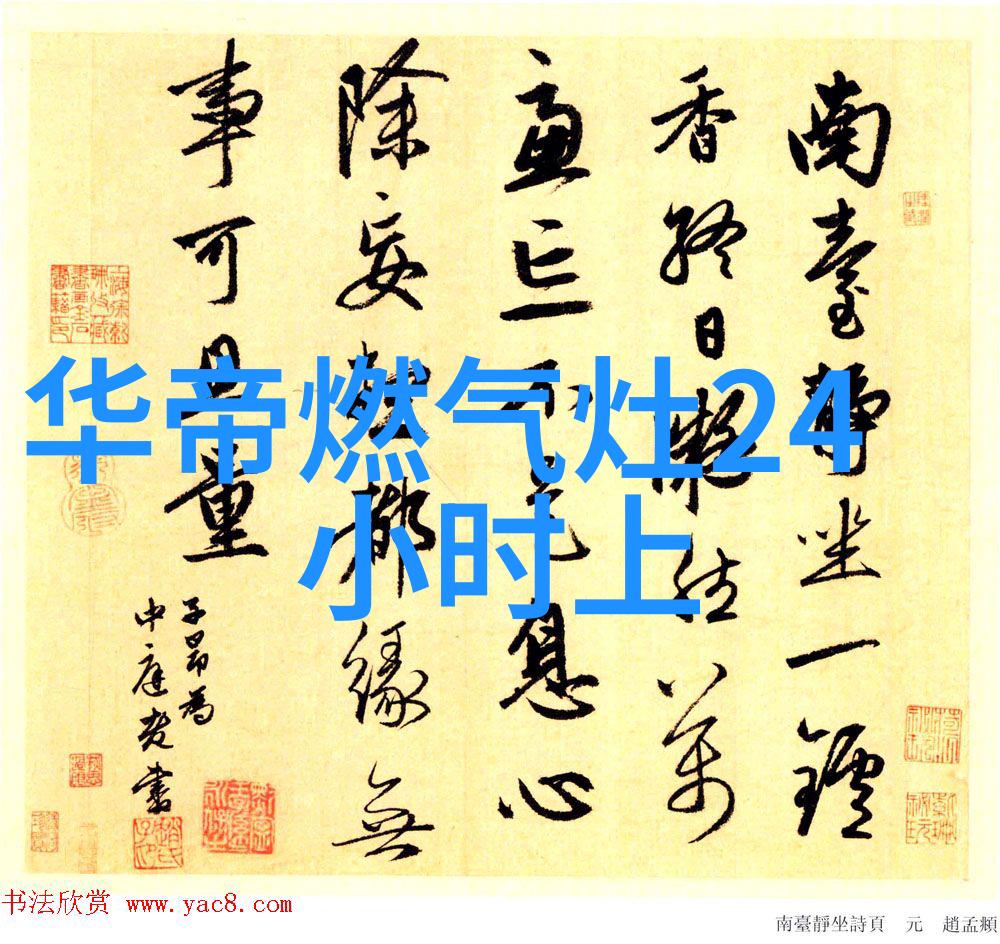 南臺靜坐一鑪
香終日凝然萬
慮忘不是息心
除妄想都緣無
事可思量
子昂為
中庭老書
华帝燃气灶24
小时上
书法欣赏 www.yac8.com
南臺靜坐詩頁 元 趙孟頫